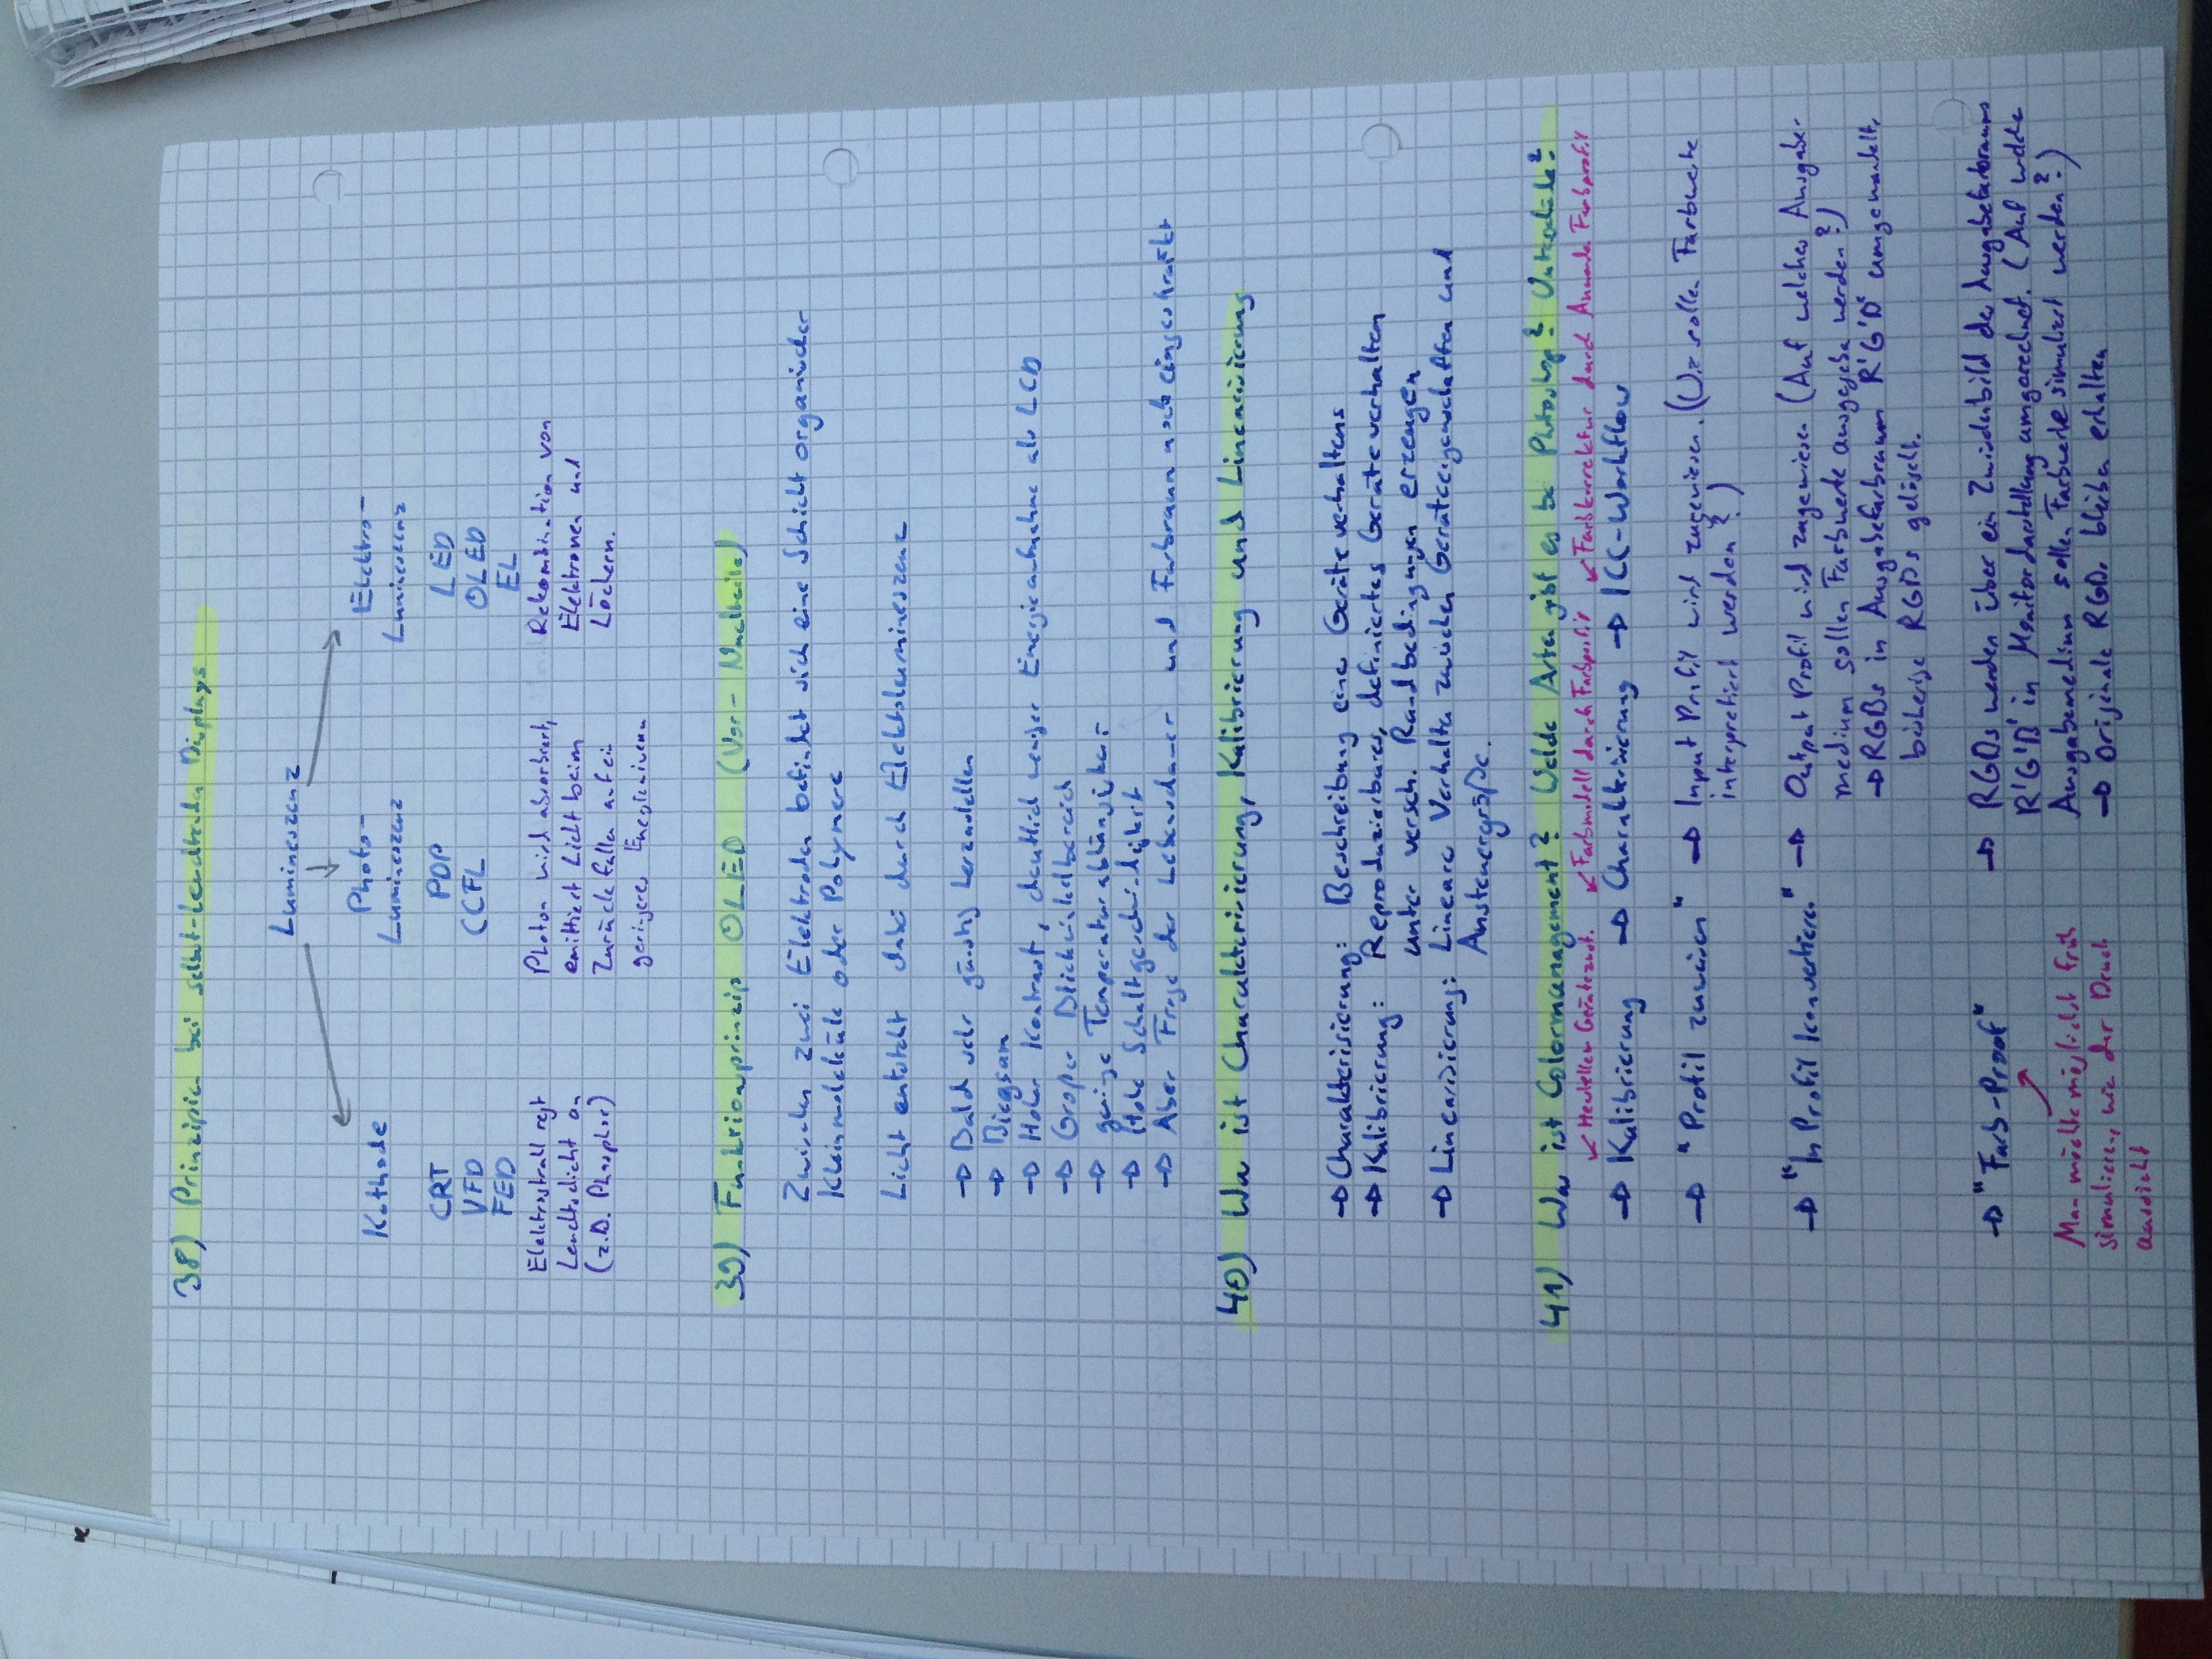 38) Prinzipien bei selbst-leuchtenden Displays
Lumineszenz
Kathode
Photo-
Lumineszenz
Elektro-
Lumineszenz
CRT
VFD
FED
PDP
CCFL
LED
OLED
EL
Elektrostrahl regt
Leuchtschicht an
(z.B. Phosphor)
Photon wird absorbiert,
emittiert Licht beim
Zurückfallen auf ein
geringeres Energieniveau
Rekombination von
Elektronen und
Löchern.
39) Funktionsprinzip OLED (Vor- Nachteile)
Zwischen zwei Elektroden befindet sich eine Schicht organischer
Kleinmoleküle oder Polymere
Licht entsteht dabei durch Elektrolumineszenz
→ Bald sehr günstig herzustellen
→ Biegsam
→ Hoher Kontrast, deutlich weniger Energieaufnahme als LCD
→ Großer Blickwinkelbereich
→ geringe Temperaturabhängigkeit
→ Hohe Schaltgeschwindigkeit
→ Aber Frage der Lebensdauer und Farbraum noch eingeschränkt
40) Was ist Charakterisierung, Kalibrierung und Linearisierung
→ Charakterisierung: Beschreibung eine Geräteverhaltens
→ Kalibrierung: Reproduzierbares, definiertes Geräteverhalten
unter versch. Randbedingungen erzeugen
→ Linearisierung: Lineare Verhalten zwischen Geräteeigenschaften und
Ansteuergröße.
41) Was ist Colormanagement? Welche Arten gibt es bei Photoshop? Unterschiede?
↙ Herstellen Gerätezust. ↙ Farbmodell durch Farbprofil ↙ Farbkorrektur durch Anwenden Farbprofil
→ Kalibrierung → Charakterisierung → ICC-Workflow
→ "Profil zuweisen" → Input Profil wird zugewiesen. (Wie sollen Farbwerte
interpretiert werden?)
→ "In Profil konvertieren" → Output Profil wird zugewiesen (Auf welches Ausgabe-
medium sollen Farbwerte ausgegeben werden?)
→ RGBs in Ausgabefarbraum R'G'B' umgewandelt,
bisherige RGBs gelöscht.
→ "Farb-Proof" → RGBs werden über ein Zwischenbild des Ausgabefarbraums
R'G'B' in Monitordarstellung umgerechnet. (Auf welchem
Ausgabemedium sollen Farbwerte simuliert werden?)
→ Originale RGBs bleiben erhalten
Man möchte möglichst früh
simulieren, wie der Druck
aussieht